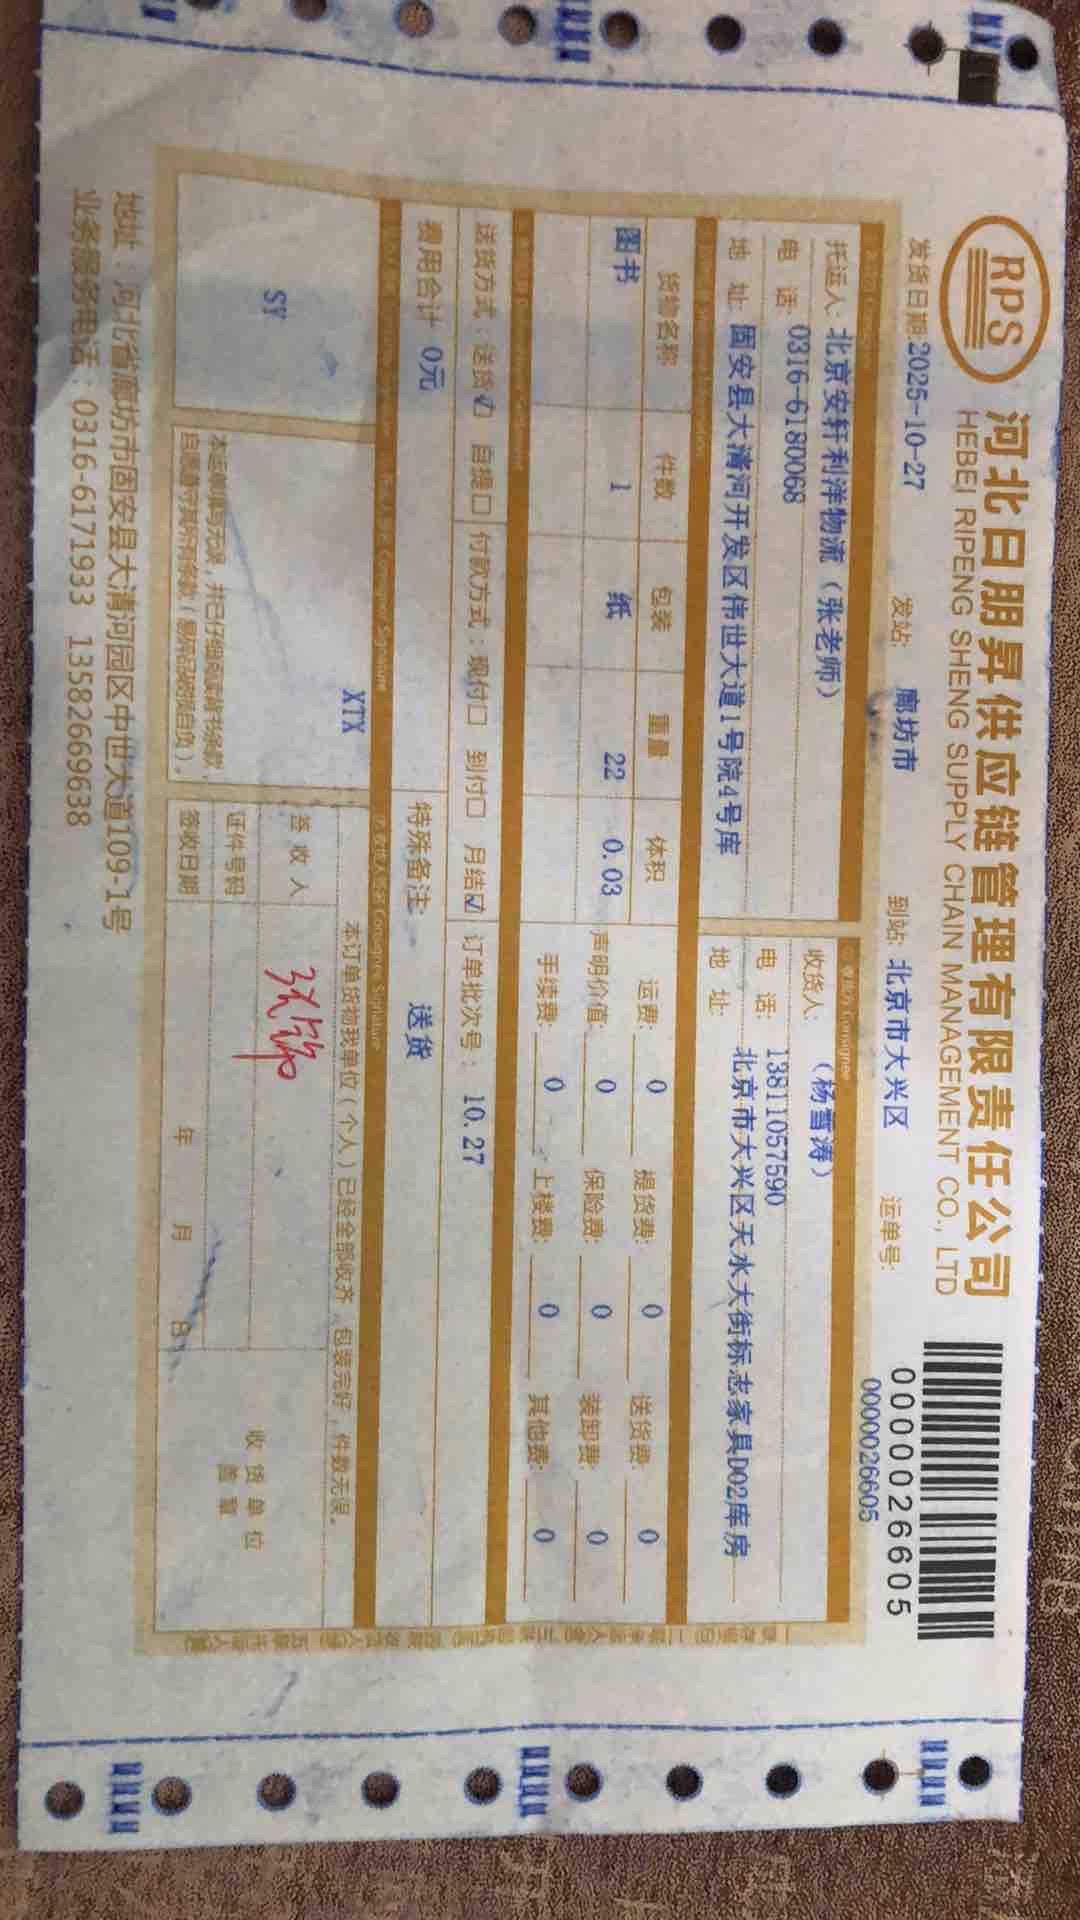 RPS
河北日朋昇供应链管理有限责任公司
HEBEI RIPENG SHENG SUPPLY CHAIN MANAGEMENT CO., LTD
0000026605
发货日期:2025-10-27 发站: 廊坊市 到站: 北京市大兴区 运单号: 0000026605
托运人: 北京安轩利洋物流（张老师）
电 话: 0316-6180068
地 址: 固安县大清河开发区伟世大道1号院4号库
收货方 Consignee
收货人: （杨雪涛）
电 话: 13811057590
地 址: 北京市大兴区天水大街标志家具D02库房
货物名称 件数 包装 重量 体积
图书 1 纸 22 0.03
运费: 0 提货费: 0 送货费: 0
声明价值: 0 保险费: 0 装卸费: 0
手续费: 0 上楼费: 0 其他费: 0
送货方式：送货☑ 自提□ 付款方式：现付□ 到付□ 月结☑ 订单批次号：10.27
费用合计 0元 特殊备注: 送货
Consignor Signature
Consignee Signature
SY
XTX
本运单填写无误，并已仔细阅读背书条款，
自愿遵守其所有条款（易碎品破损自负）。
本订单货物我单位（个人）已经全部收齐，包装完好，件数无误。
签 收 人
证件号码
签收日期 年 月 日
收 货 单 位
盖 章
地址：河北省廊坊市固安县大清河园区中世大道109-1号
业务服务电话：0316-6171933 13582669638